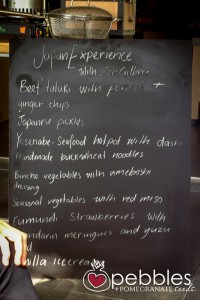 Japan Experience
with
Beef tataki with +
ginger chips
Japanese pickles
Yosenabe - Seafood hotpot with dashi
Handmade buckwheat noodles
Bincho vegetables with umeboshi
dressing
Seasonal vegetables with red miso
Eumundi Strawberries with
mandarin meringues and yuzu
vanilla icecream
pebbles
+ POMEGRANATE seeds